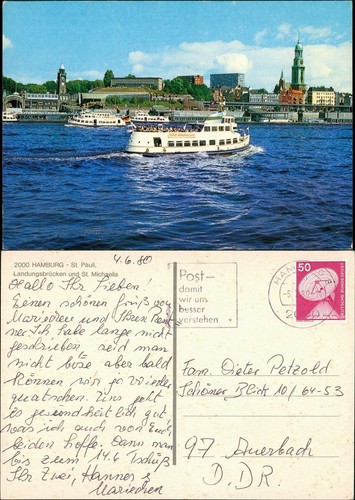 2000 HAMBURG - St. Pauli,
Landungsbrücken und St. Michaelis
4.6.80
Hallo Ihr Lieben!
Einen schönen Gruß von
Mariechen und
Ich habe lange nicht
geschrieben, seid man
nicht böse aber bald
können wir ja wieder
quatschen. Uns geht
es gesundheitlich gut
was ich auch von Euch
beiden hoffe. Dann man
bis zum 14.6 Tschüß
Ihr Zwei, Hannes &
Mariechen
Post-
damit
wir uns
besser
verstehen
HAM
2
50
DEUTSCHE BUNDESPOST
Fam. Dieter Petzold
Schöner Blick 10/64-53
97 Auerbach
D.D.R.